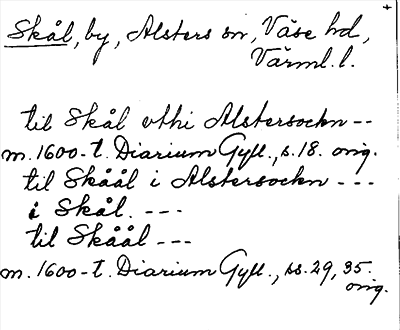 +
Skål, by, Alsters sn, Väse hd,
Värml. l.
til Skål vthi Alstersockn --
m. 1600-t. Diarium Gyll., s. 18. orig.
til Skåål i Alstersockn ---
i Skål. ---
til Skåål ---
m. 1600-t. Diarium Gyll., ss. 29, 35.
orig.